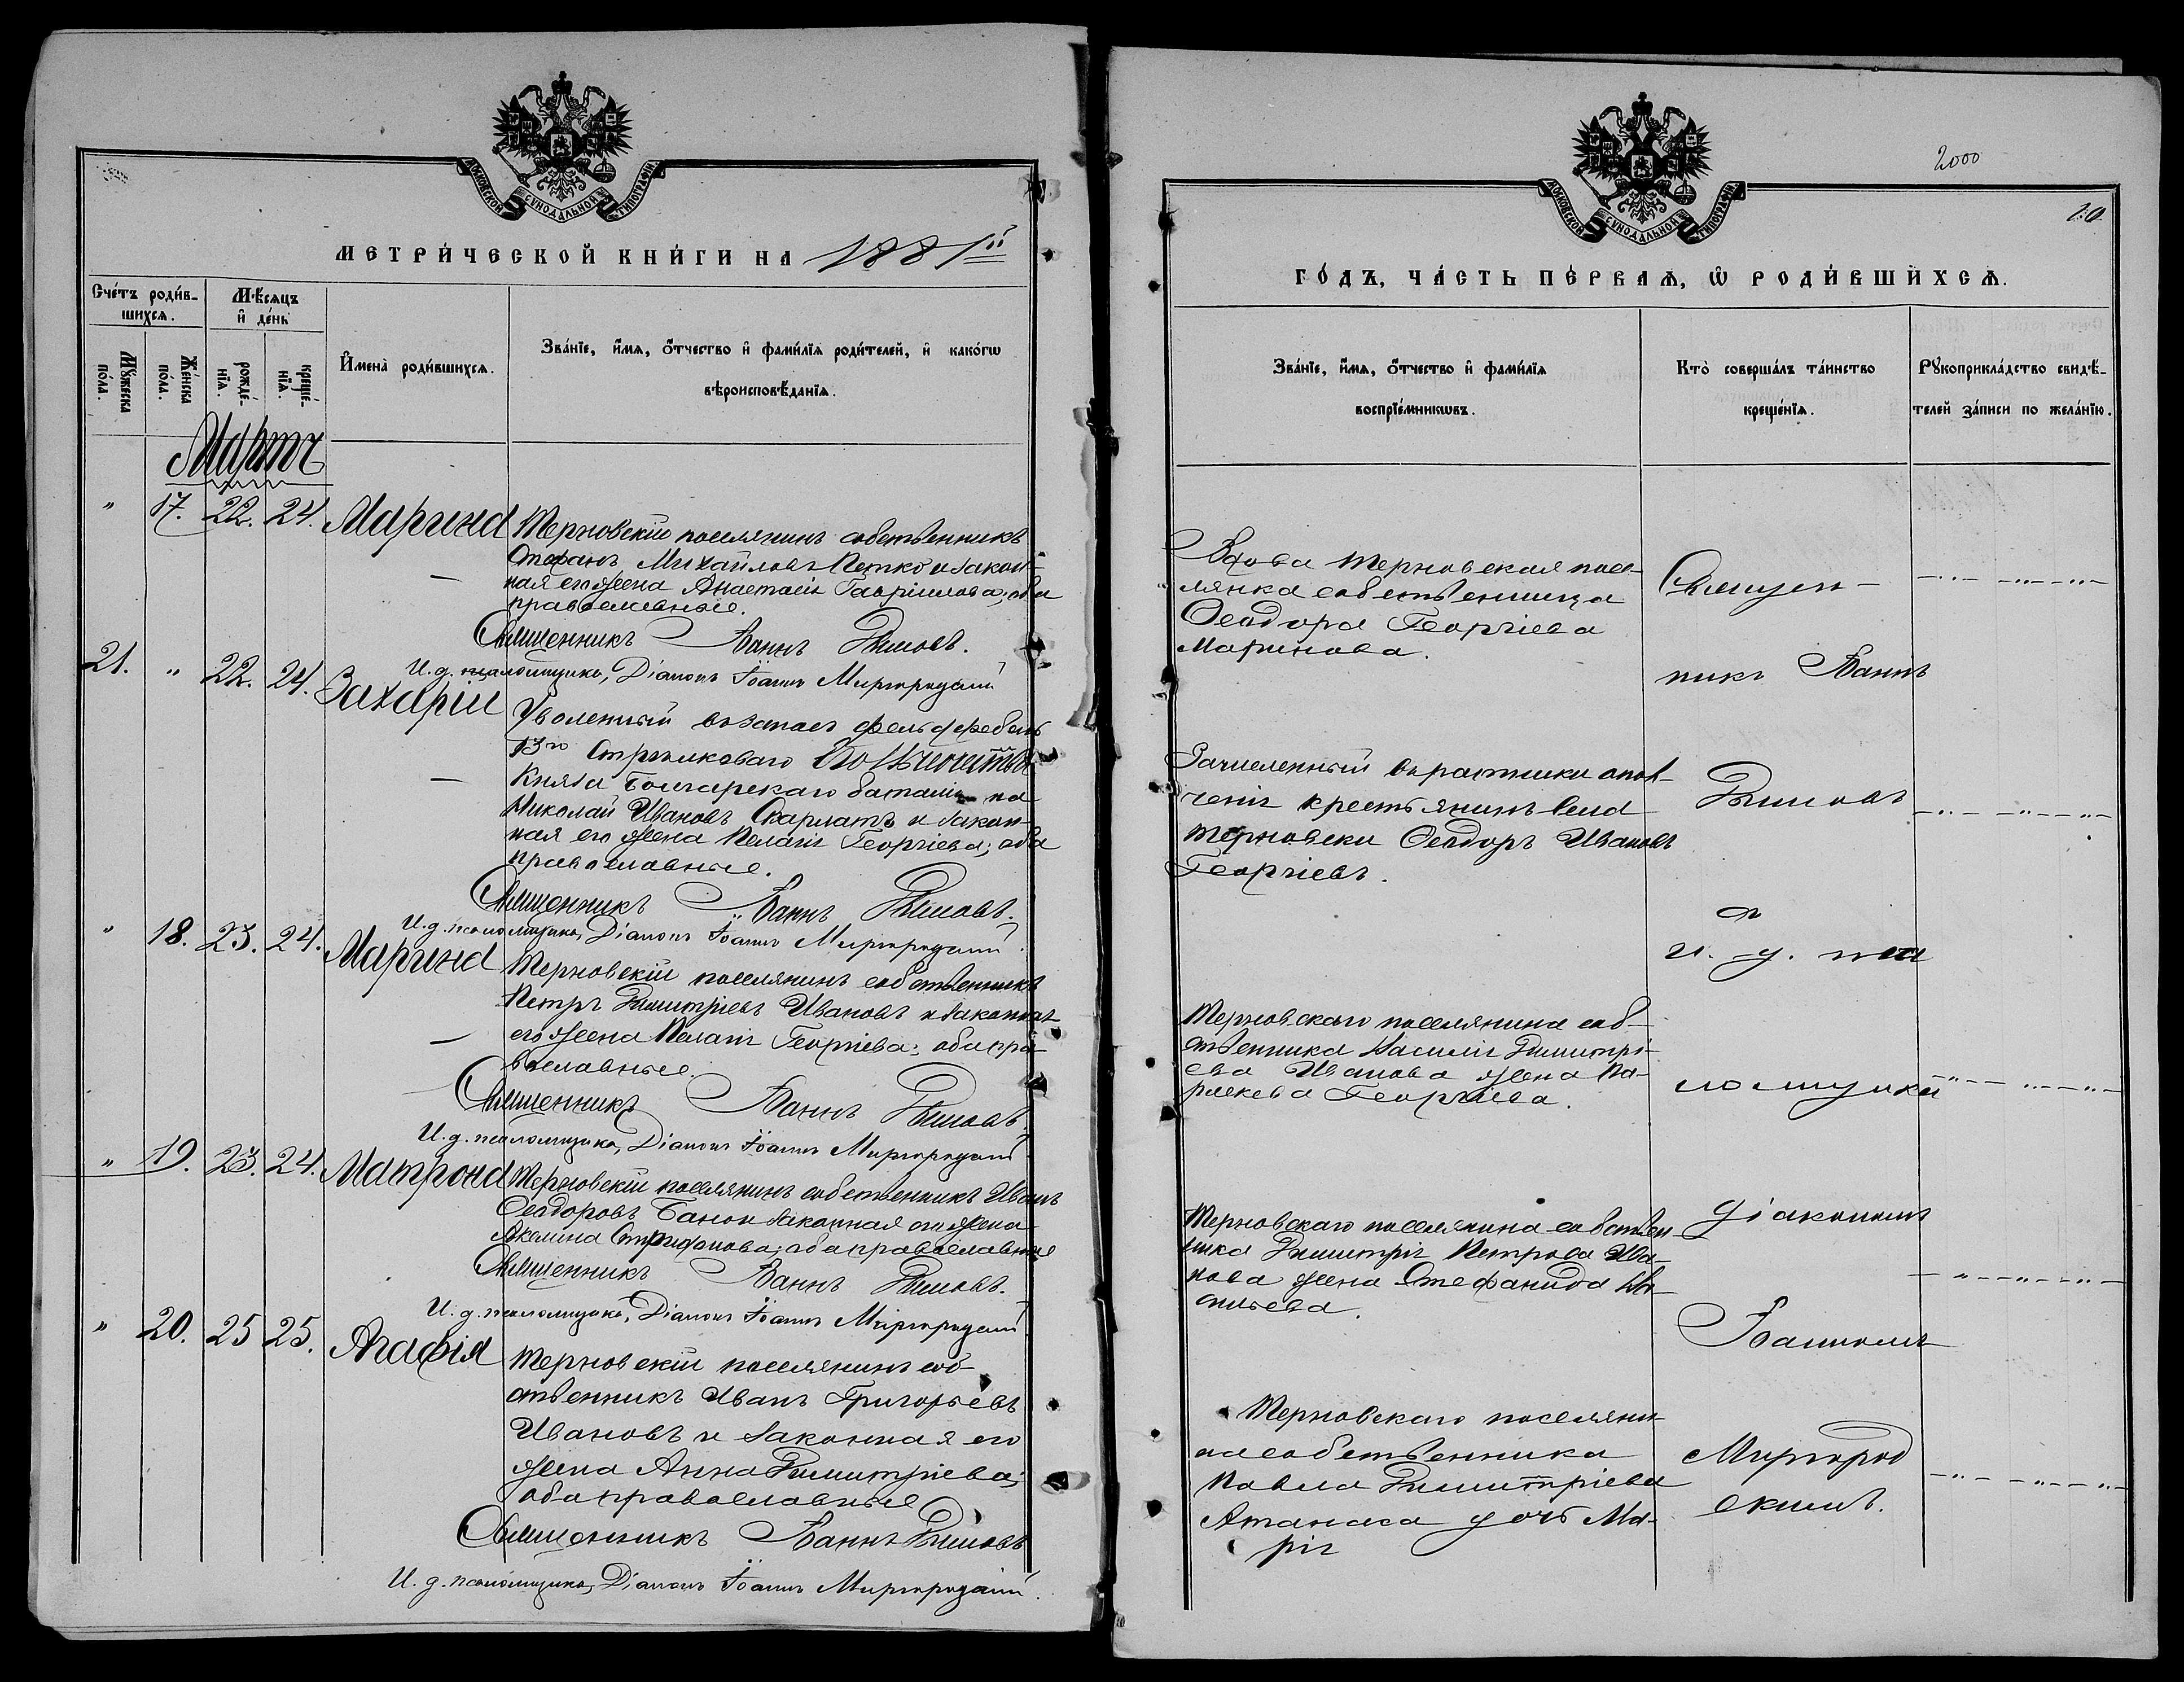 МОСКОВСКОЙ СѴНОДАЛЬНОЙ ТИПОГРАФІИ
МЕТРИ́ЧЕСКОЙ КНИ́ГИ НА 1881й
Сче́тъ роди́в-
шихсѧ.
Мѣ́сѧцъ
и҆ де́нь
Мꙋ́жеска
по́ла.
Же́нска
по́ла.
рожде́-
нїѧ.
креще́-
нїѧ.
И҆мена̀ роди́вшихсѧ.
Зва́нїе, и҆́мѧ, ѻ҆́тчество и҆ фами́лїѧ роди́телей, и҆ како́гѡ
вѣроисповѣ́данїѧ.
Мартъ
" 17. 22. 24. Марина
Терновскій поселянинъ собственникъ
Стефанъ Михайловъ Петко и закон-
ная его жена Анастасія Гавріилова; оба
православные.
Священникъ Іоаннъ Дымовъ.
И. д. псаломщика, Діаконъ Іоаннъ Миргородскій
21. " 22. 24. Захарій
Уволенный въ запасъ фельдфебель
13го Стрѣлковаго Его Высочества
Князя Болгарскаго баталіона
Николай Ивановъ Скарлатъ и закон-
ная его жена Пелагія Георгіева; оба
православные.
Священникъ Іоаннъ Дымовъ.
И. д. псаломщика, Діаконъ Іоаннъ Миргородскій.
" 18. 23. 24. Марина
Терновскій поселянинъ собственникъ
Петръ Димитріевъ Ивановъ и законная
его жена Пелагія Георгіева; оба пра-
вославные.
Священникъ Іоаннъ Дымовъ.
И. д. псаломщика, Діаконъ Іоаннъ Миргородскій
" 19. 23. 24. Матрона
Терновскій поселянинъ собственникъ Иванъ
Ѳеодоровъ Банои законная его жена
Акелина Стрифонова; оба православные
Священникъ Іоаннъ Дымовъ.
И. д. псаломщика, Діаконъ Іоаннъ Миргородскій
" 20. 25 25. Агафія
Терновскій поселянинъ соб-
ственникъ Иванъ Григорьевъ
Ивановъ и законная его
жена Анна Димитріева;
оба православные
Священникъ Іоаннъ Дымовъ
И. д. псаломщика, Діаконъ Іоаннъ Миргородскій.
2000
10
МОСКОВСКОЙ СѴНОДАЛЬНОЙ ТИПОГРАФІИ
ГО́ДЪ, ЧА́СТЬ ПЕ́РВАѦ, Ѡ҆ РОДИ́ВШИХСѦ.
Зва́нїе, и҆́мѧ, ѻ҆́тчество и҆ фами́лїѧ
воспрїе́мникѡвъ.
Кто̀ соверша́лъ та́инство
креще́нїѧ.
Рꙋкоприкла́дство свидѣ́-
телей за́писи по жела́нїю.
Вдова Терновская посе-
лянка собственница
Ѳеодора Георгіева
Маринова.
Зачисленный въ ратники опол-
ченія крестьянинъ села
Терновки Ѳеодоръ Ивановъ
Георгіевъ.
Терновскаго поселянина соб-
ственника Василія Димитрі-
ева Иванова жена Па-
раскева Георгіева.
Терновскаго поселянина собствен-
ника Димитрія Петрова Ива-
нова жена Стефанида Ва-
сильева.
Терновскаго поселяни-
на собственника
Павла Димитріева
Атанаса дочь Ма-
рія
Священ-
никъ Іоаннъ
Дымовъ
съ
и. д. пса
ломщика
діакономъ
Іоанномъ
Миргород
скимъ.